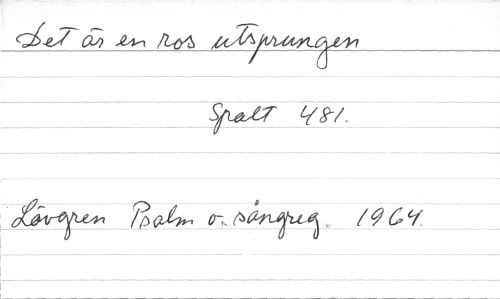 Det är en ros utsprungen
Spalt 481.
Lövgren Psalm o. sångreg. 1964.